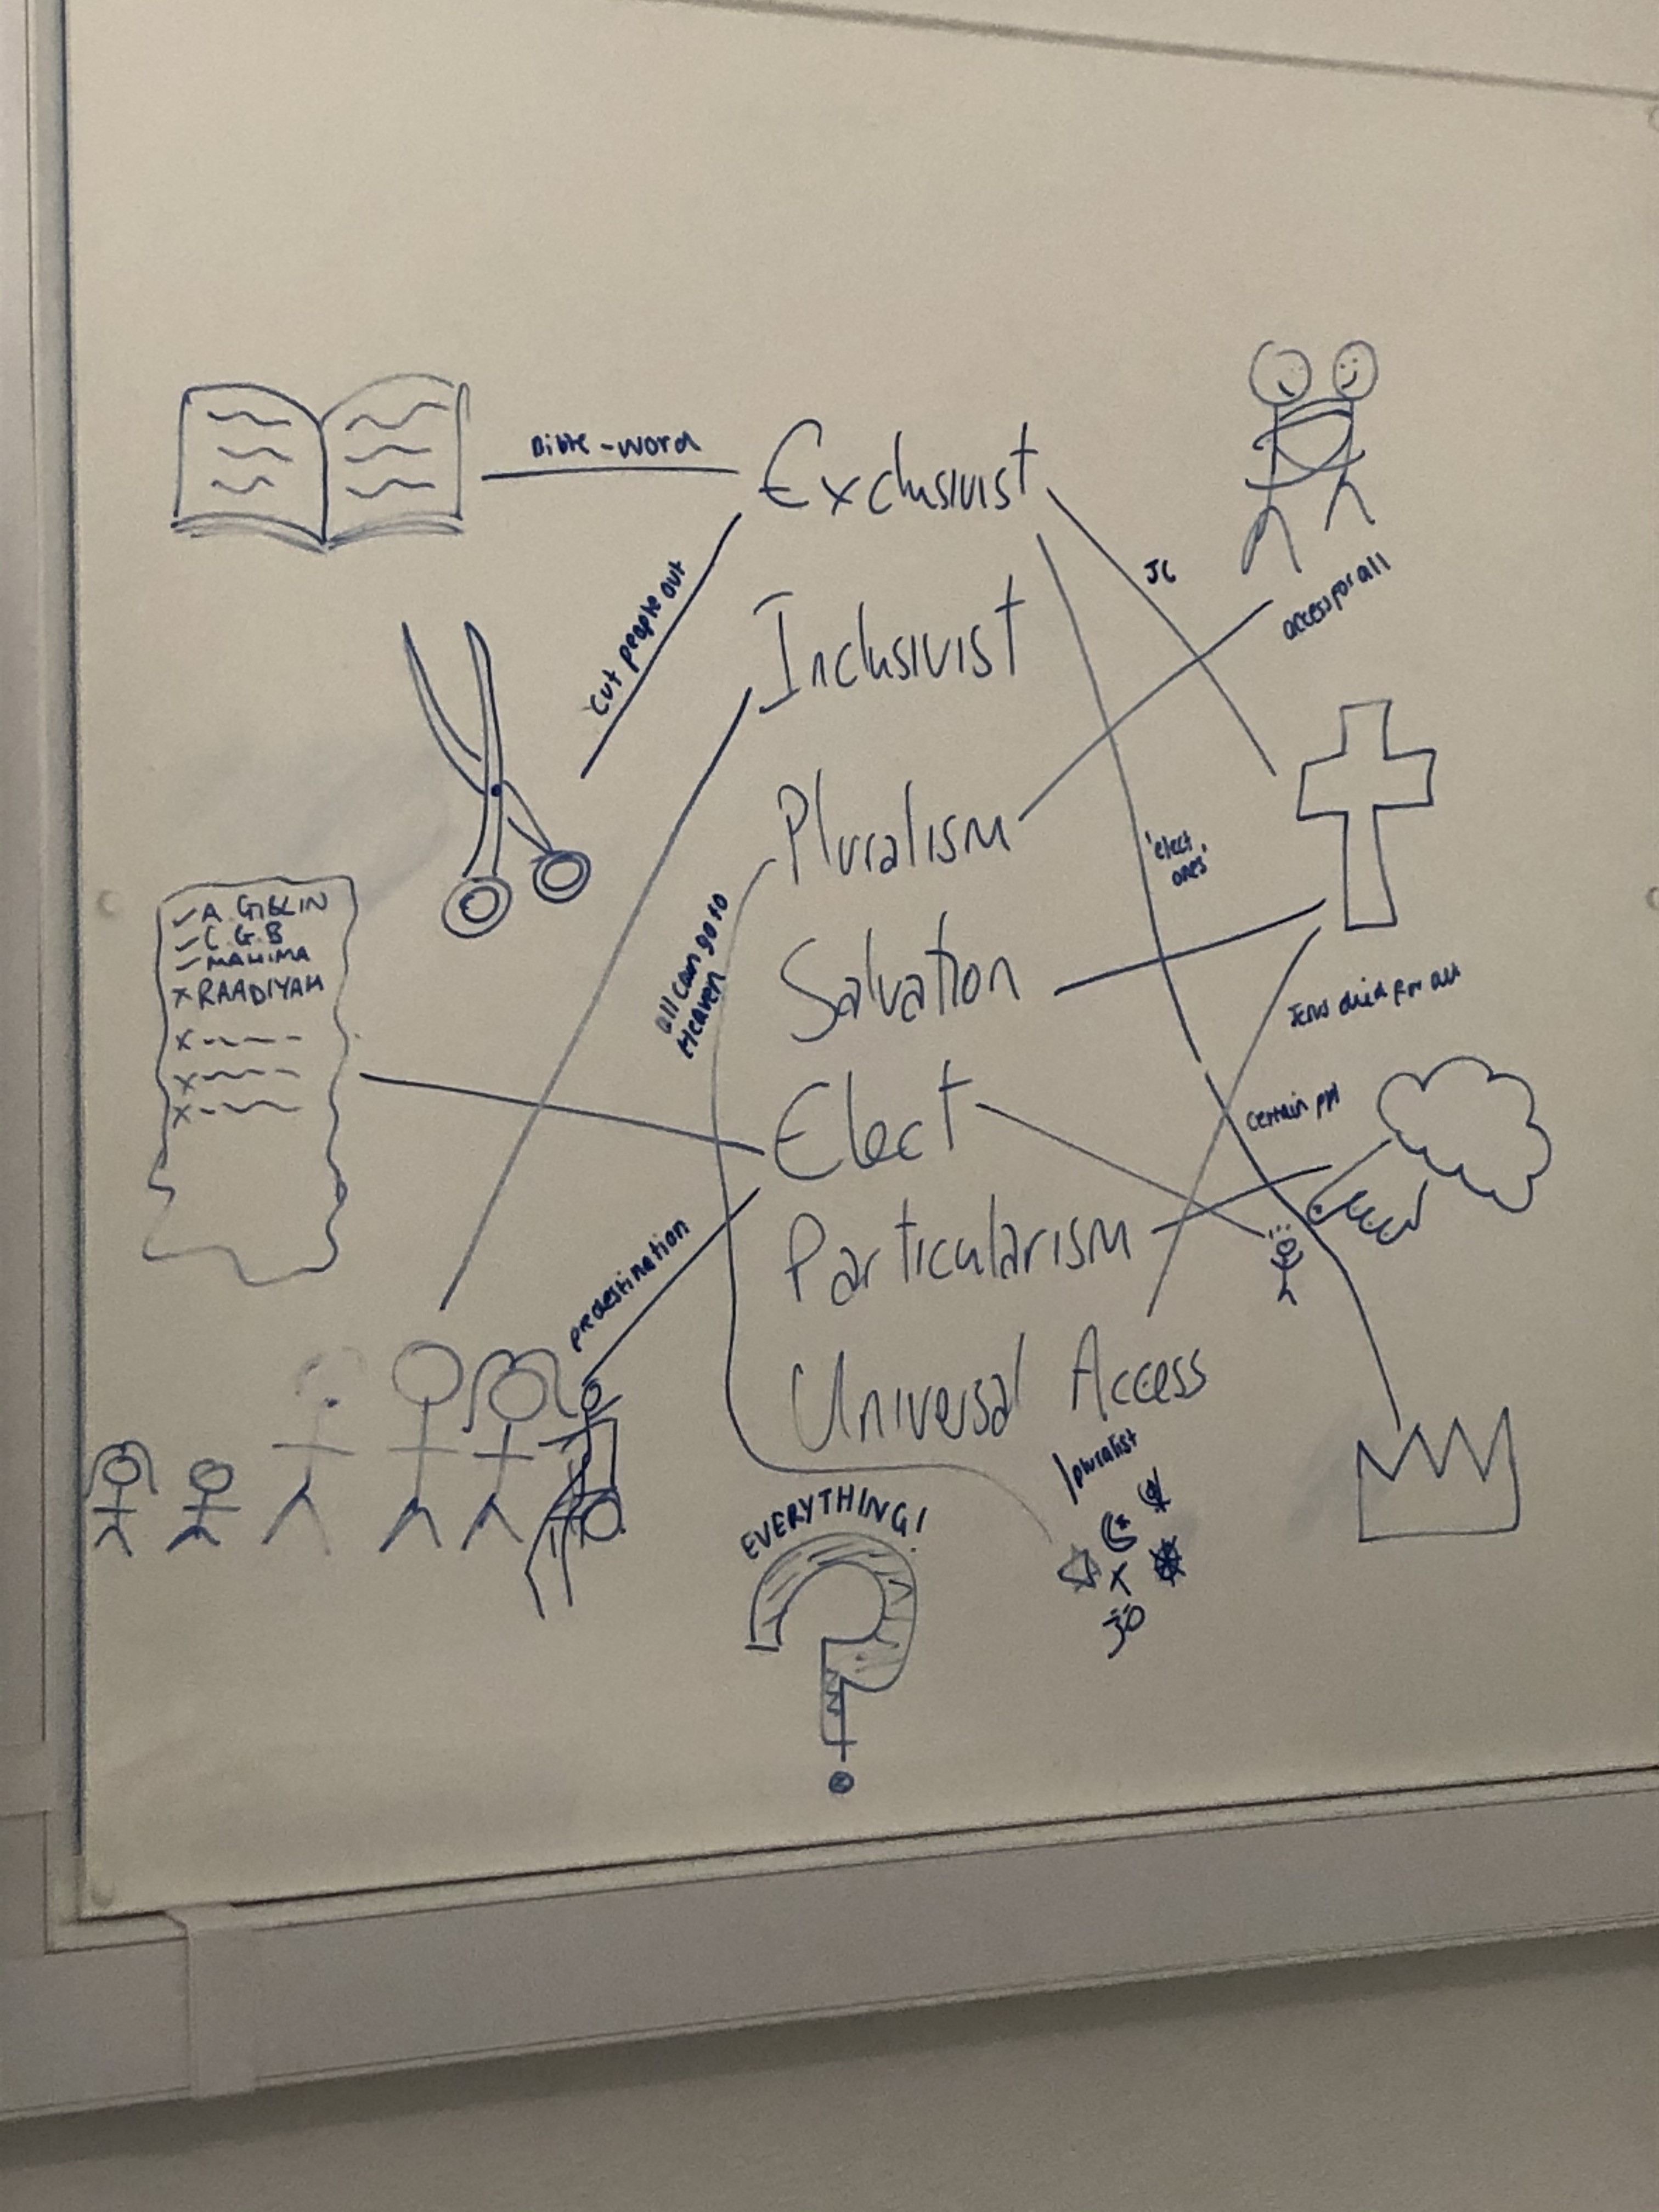 Bible-word
Exclusivist
cut people out
JC
access for all
Inclusivist
Pluralism
'elect
ones'
✓ A GIBLIN
✓ C.G.B
✓ MAHIMA
x RAADIYAH
x
x
x
all can go to
Heaven
Salvation
Jesus died for all
Elect
certain ppl
Particularism
predestination
Universal Access
pluralist
EVERYTHING!
?